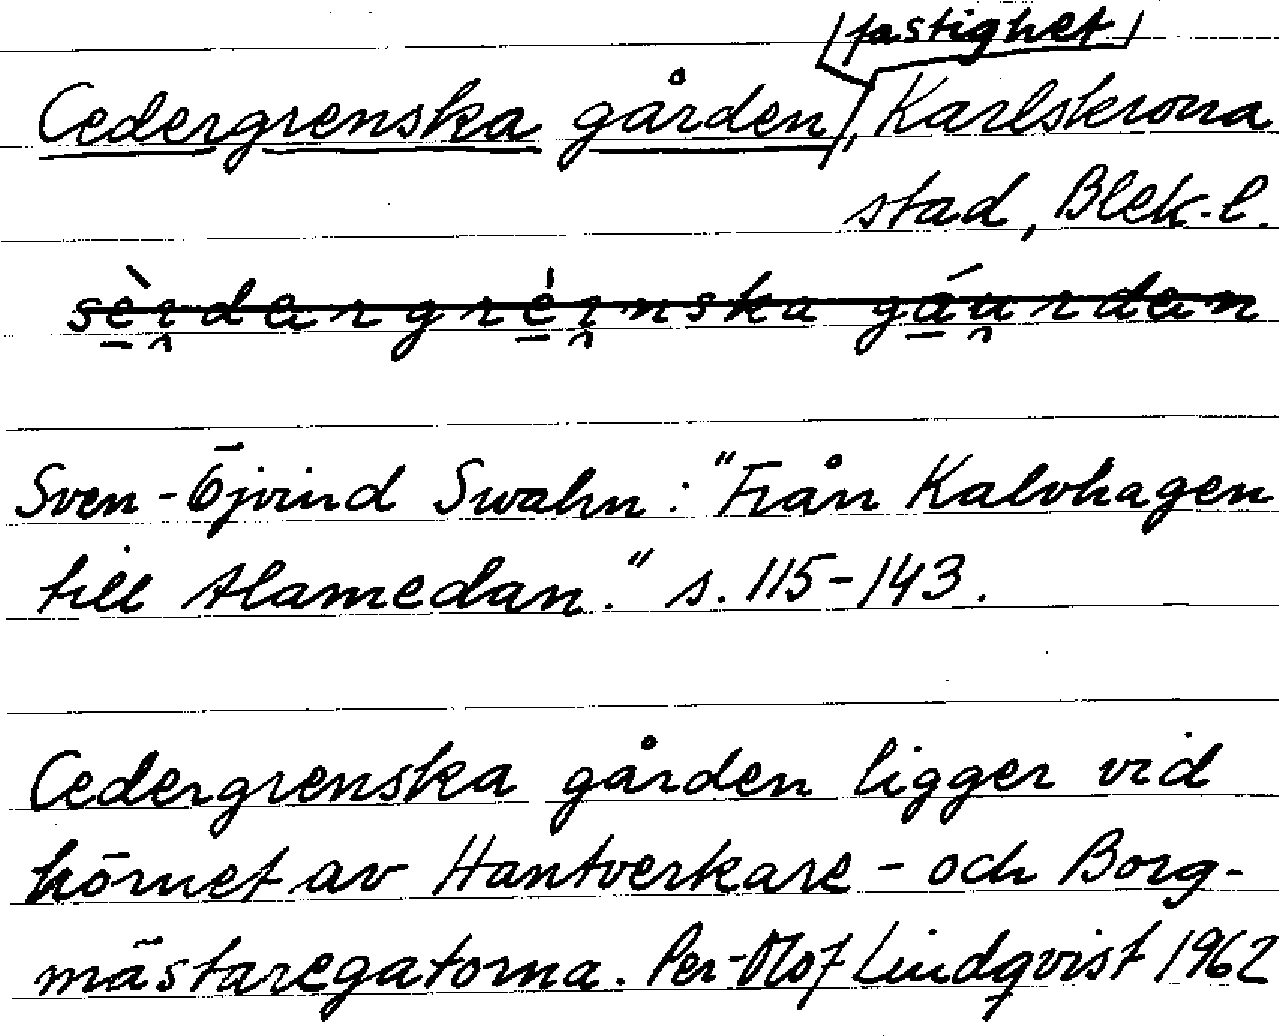 fastighet
Cedergrenska gården, Karlskrona
stad, Blek. l.
Sven-Öjvind Swahn: "Från Kalvhagen
till Alamedan." s. 115-143.
Cedergrenska gården ligger vid
hörnet av Hantverkare- och Borg-
mästaregatorna. Per-Olof Lindqvist 1962